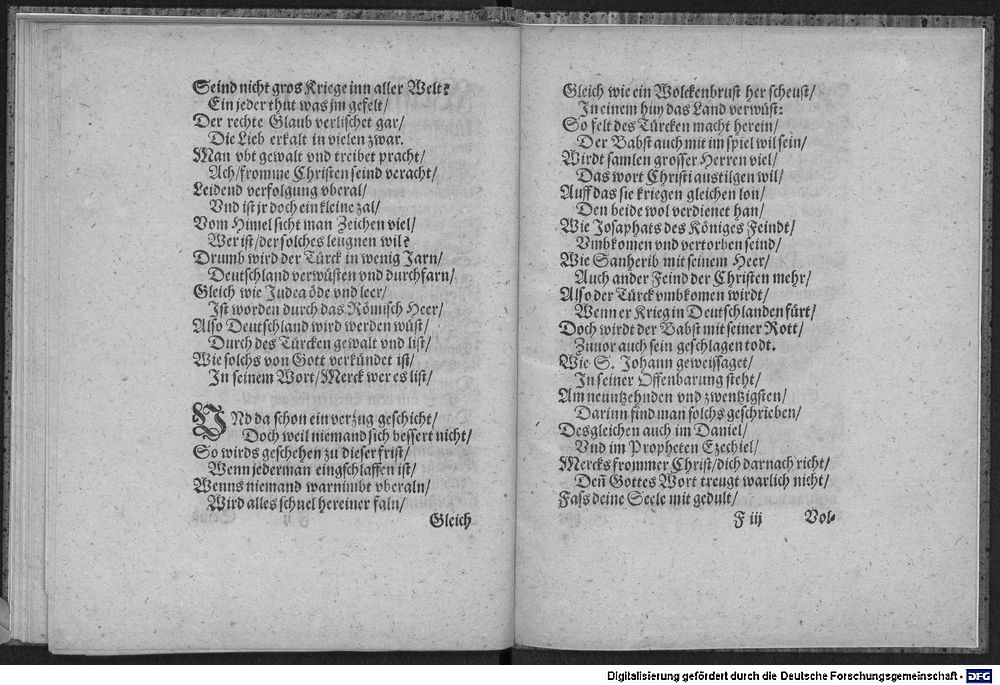 Seind nicht gros Kriege inn aller Welt?
Ein jeder thut was jm gefelt/
Der rechte Glaub verlischet gar/
Die Lieb erkalt in vielen zwar.
Man vbt gewalt vnd treibet pracht/
Ach/fromme Christen seind veracht/
Leidend verfolgung vberal/
Vnd ist jr doch ein kleine zal/
Vom Himel sicht man Zeichen viel/
Wer ist/der solches leugnen wil?
Drumb wird der Türck in wenig Jarn/
Deutschland verwüsten vnd durchfarn/
Gleich wie Judea öde vnd leer/
Ist worden durch das Römisch Heer/
Also Deutschland wird werden wüst/
Durch des Türcken gewalt vnd list/
Wie solchs von Gott verkündet ist/
In seinem Wort/Merck wer es list/
VNd da schon ein verzug geschicht/
Doch weil niemand sich bessert nicht/
So wirds geschehen zu dieser frist/
Wenn jederman eingschlaffen ist/
Wenns niemand warnimbt vberaln/
Wird alles schnel hereiner faln/
Gleich
Gleich wie ein Wolckenbrust her scheust/
In einem huy das Land verwüst:
So felt des Türcken macht herein/
Der Babst auch mit im spiel wil sein/
Wirdt samlen grosser Herren viel/
Das wort Christi austilgen wil/
Auff das sie kriegen gleichen lon/
Den beide wol verdienet han/
Wie Josaphats des Königes Feindt/
Vmbkomen vnd vertorben seind/
Wie Sanherib mit seinem Heer/
Auch ander Feind der Christen mehr/
Also der Türck vmbkomen wirdt/
Wenn er Krieg in Deutschlanden fürt/
Doch wirdt der Babst mit seiner Rott/
Zuuor auch sein geschlagen todt.
Wie S. Johann geweissaget/
In seiner Offenbarung steht/
Am neuntzehnden vnd zwentzigsten/
Darinn find man solchs geschrieben/
Desgleichen auch im Daniel/
Vnd im Propheten Ezechiel/
Mercks frommer Christ/dich darnach richt/
Deñ Gottes Wort treugt warlich nicht/
Fass deine Seele mit gedult/
F iij Vol-
Digitalisierung gefördert durch die Deutsche Forschungsgemeinschaft - DFG